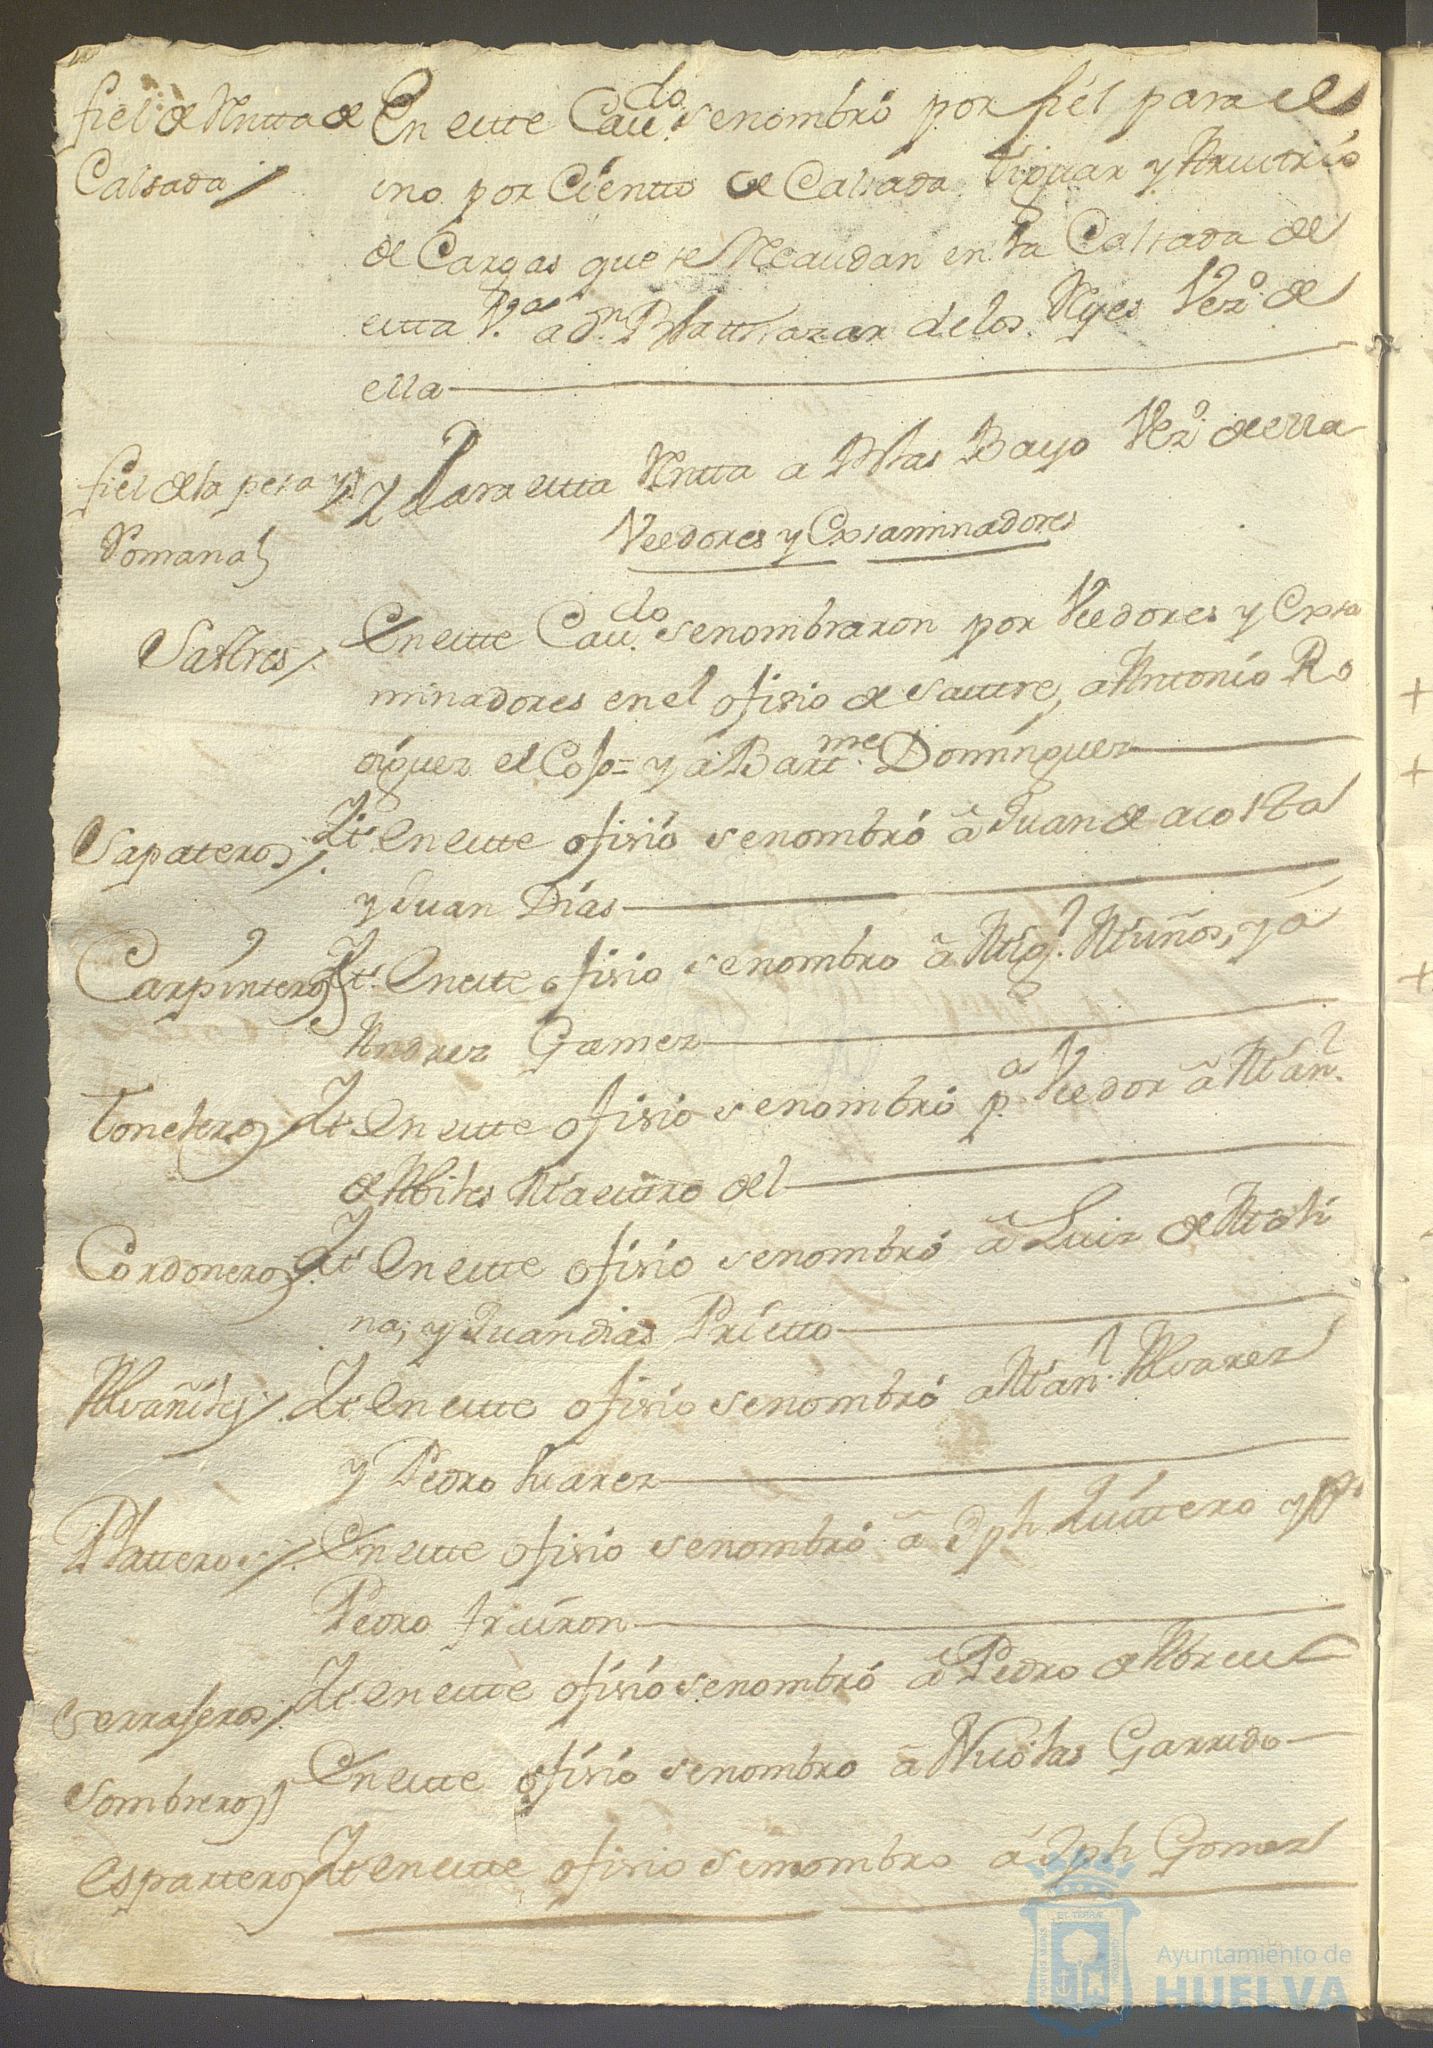 fiel de Rentta de
Calsada
En este Cau.do se nombró por fiel para el
uno por Ciento de Calsada Viguar y
de Cargas que se Recaudan en la Calsada de
esta V.a a Dn. Balthazar de los Reyes Vez.o de
ella
fiel de la pesa y
Romana
Y Para esta Rentta a Blas Bayo Vez.o de ella
Veedores y Exsaminadores
Sastres
En este Cau.do se nombraron por Veedores y Exsa
minadores en el ofisio de sastre, a Antonio Ro
driguez el Cojo = y a Bart.me Dominguez
Sapateros
Yt. en este ofisio se nombró â Juan de acosta
y Juan Días
Carpinteros
Yt. En este ofisio se nombro â Mig.l Muños, y â
Andrez Gamez
Toneleros
Yt. En este ofisio se nombró p.a Veedor â Man.l
de Abiles Maestro del
Cordoneros
Yt. En este ofisio se nombró â Luiz de Moli
na; y Juan dias Prietto
Alvañiles
Yt. En este ofisio se nombró a Man.l Alvarez
y Pedro suarez
Platteros
En este ofisio se nombró â Jph Quintero y
Pedro
Serrajeros
Yt. en este ofisio se nombró â Pedro de Abreu
Sombreros
En este ofisio se nombro â Nicolas Garrido
Espartteros
Yt. en este ofisio se nombro â Jph Gomez
Ayuntamiento de
HUELVA